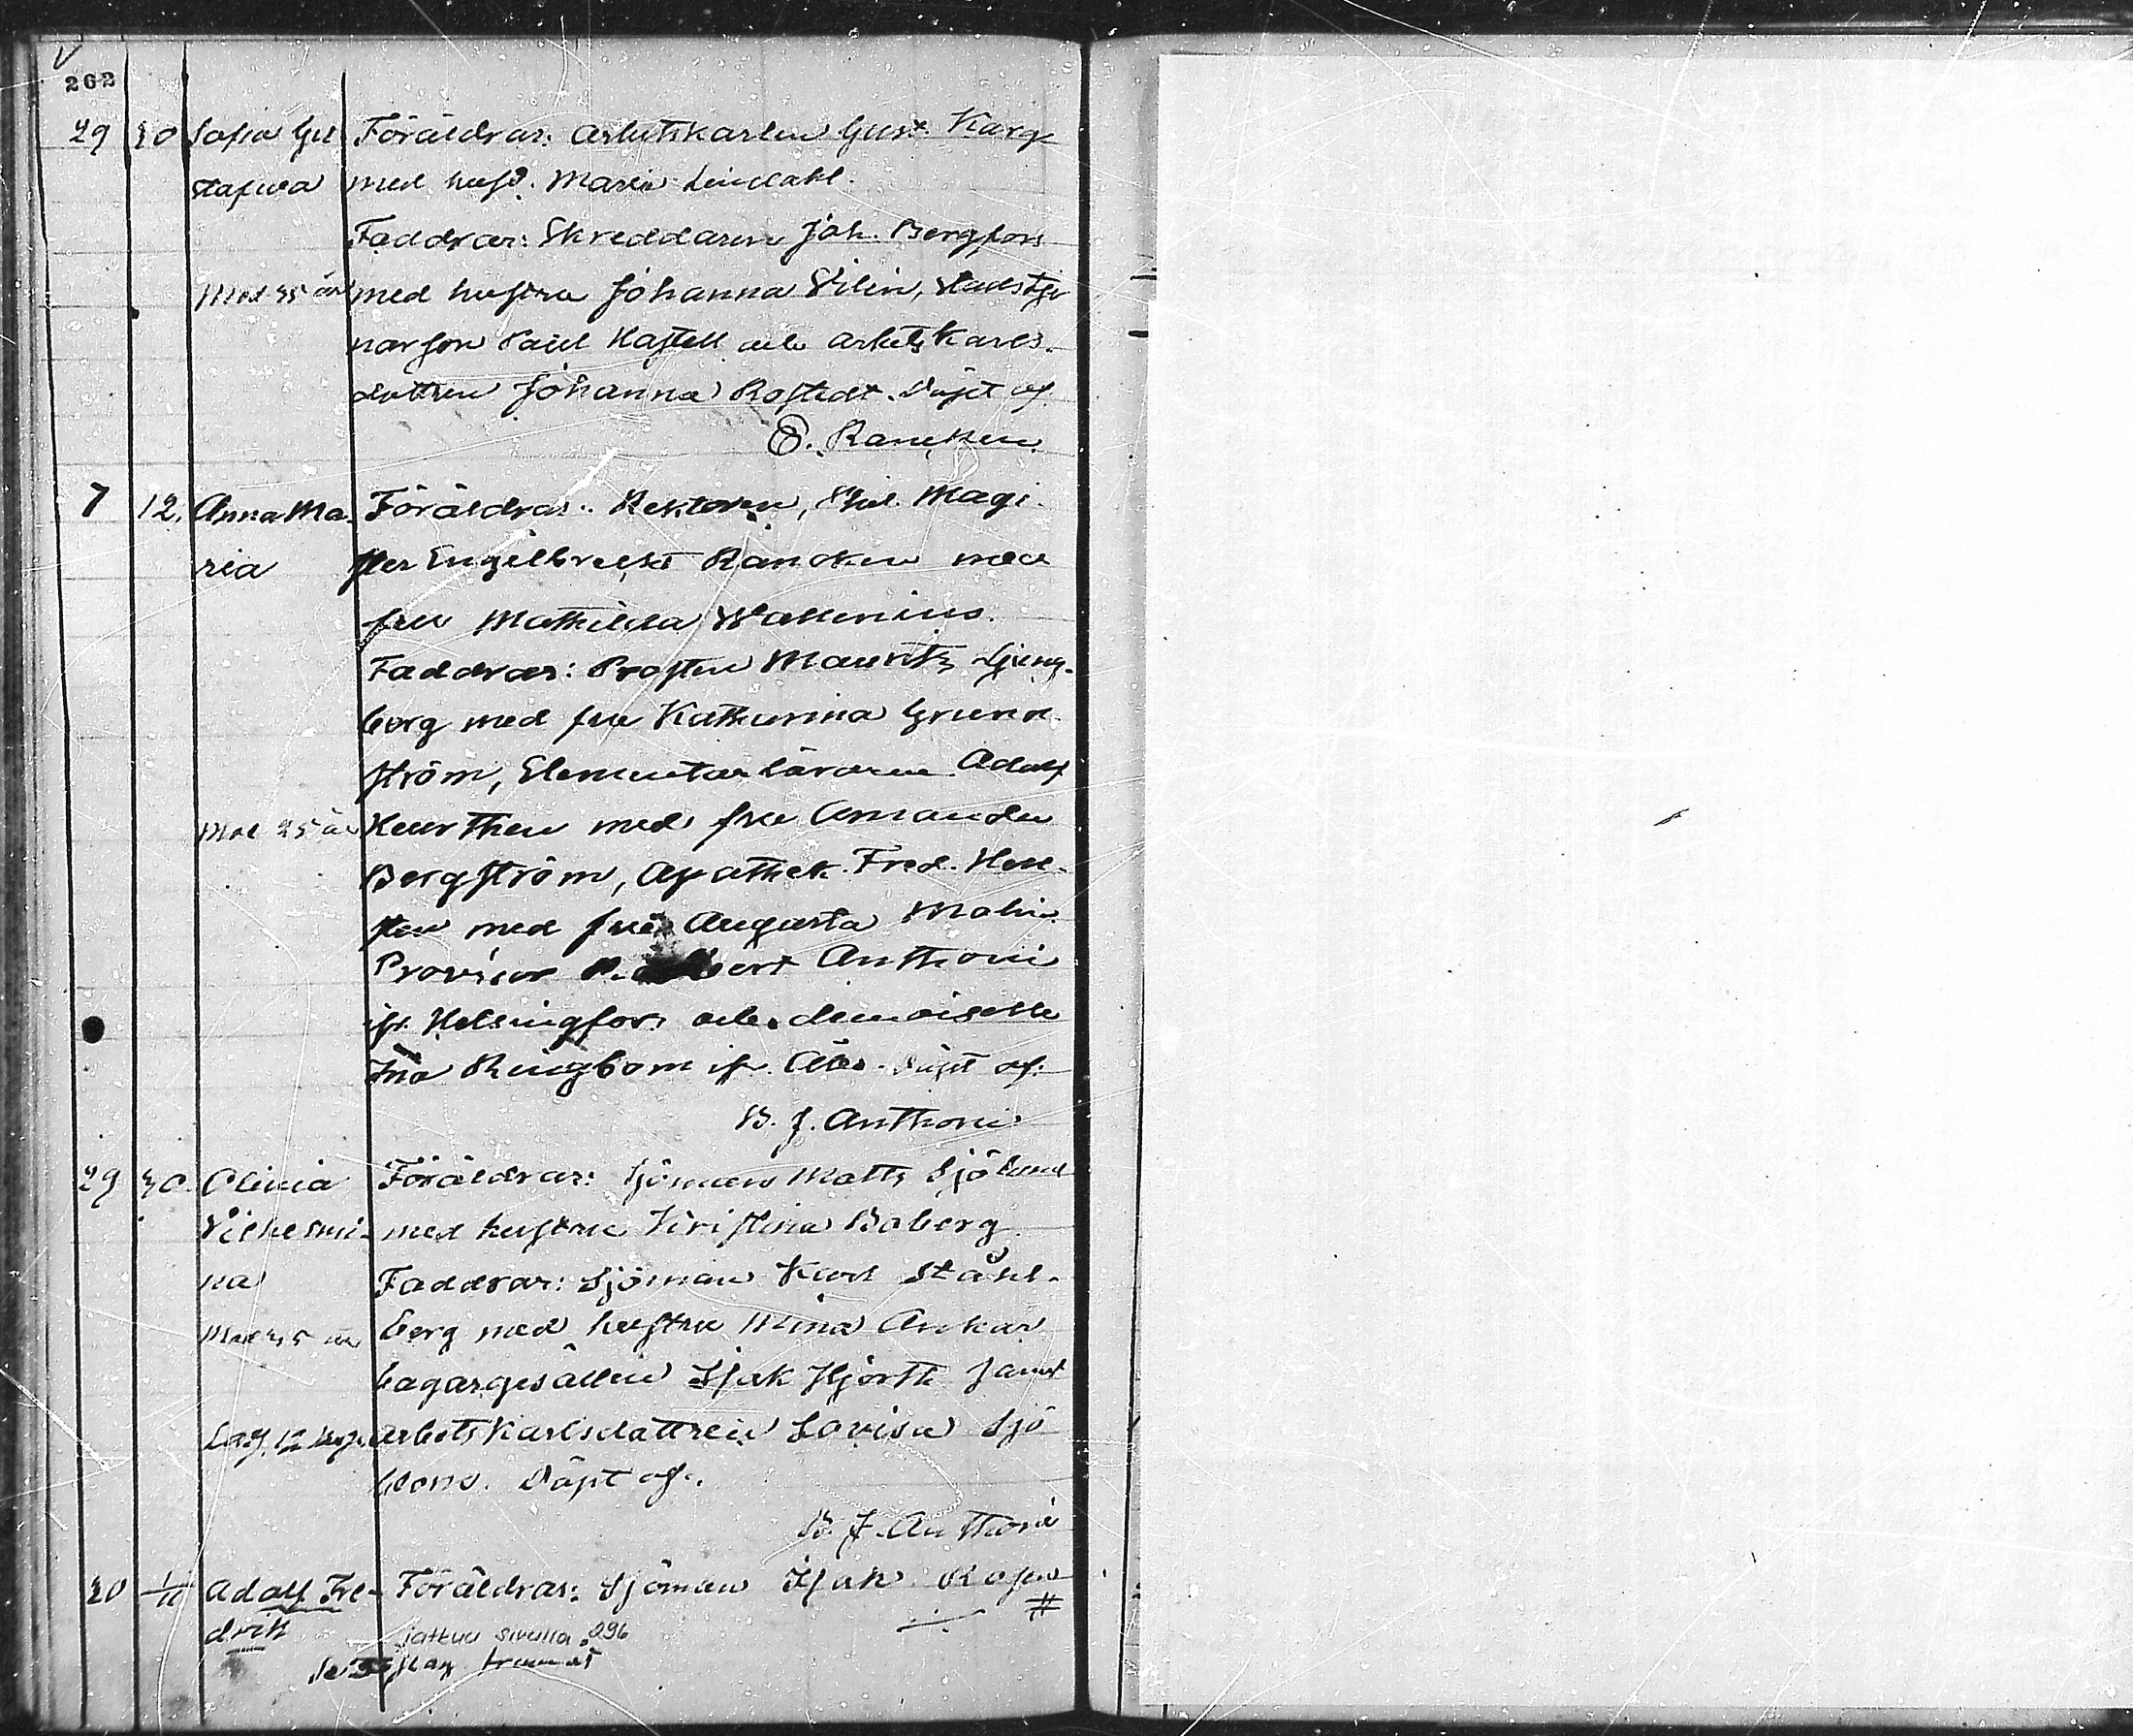 262
29 30 Sofia Gu- Föräldrar: Arbetskarlen Gust. Karg
stafva med hust. Maria Lindahl.
Faddrar: Skreddaren Joh. Bergfors
Mod 35 år med hustru Johanna Vilén, Stadstje
narson Paul Hastell och arbetskarls-
dottren Johanna Rostedt. Döpt af
E. Rancken
7 12. Anna Ma- Föräldrar: Rektoren, Phil. Magi-
ria ster Engelbrecht Rancken med
fru Mathilda Wallenius.
Faddrar: Prosten Mauritz Ljung-
berg med fru Katharina Grund-
ström, Elementarläraren Adolf
Mod 25 år med fru Amanda
Bergström, Apothek. Fred.
med fru Augusta Malin
Provisor Anthoni
ifr. Helsingfors och demoiselle
Ina Ringbom ifr. Åbo. Döpt af:
B. J. Anthoni
29 30. Olivia Föräldrar: Sjöman Matts Sjölund
Vilhelmi- med hustru Kristina Boberg.
na Faddrar: Sjöman Karl Ståhl-
Mod 35 år berg med hustru Mina Ankar
bagargesällen Isak Hjorth samt
arbetskarlsdottren Lovisa Sjö-
blom. Döpt af.
B. J. Anthoni
30 1/10 Adolf Fre- Föräldrar: Sjöman Isak Rosen
drik jatkuu sivulla 296 #